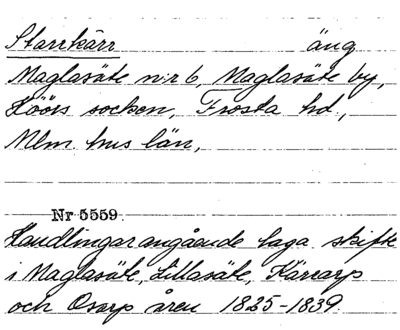 Starrkärr äng
Maglasäte n:r 6, Maglasäte by,
Höörs socken, Frosta hd,
Mlm. hus län,
Nr 5559.
Handlingar angående laga skifte
i Maglasäte, Lillasäte, Kärrarp
och Osarp åren 1825-1839